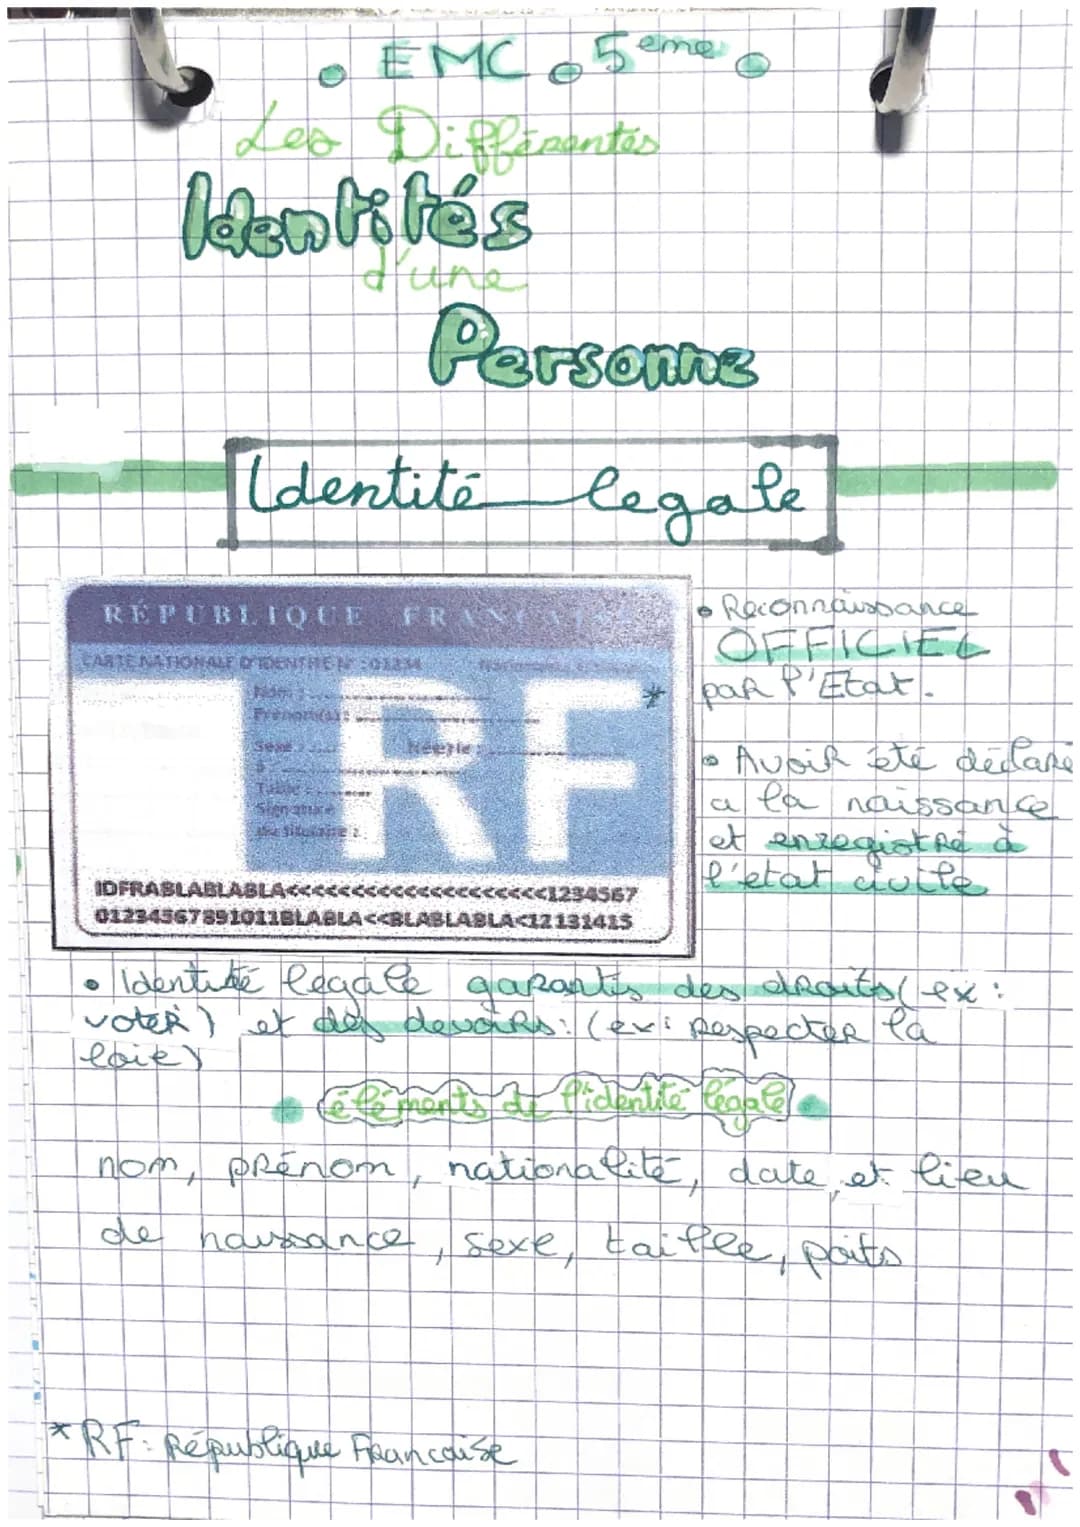 EMC 5eme
Les Différentes
Identités
d'une
Personne
Identité legale
RÉPUBLIQUE FRANÇAISE
CARTE NATIONALE D'IDENTITÉ N° : 01234
Nom :
Prénom(s) :
Sexe : Né(e) le :
à
Taille :
Signature
du titulaire :
RF*
IDFRABLABLABLA<<<<<<<<<<<<<<<<<<<<<<1234567
01234567891011BLABLA<<BLABLABLA<12131415
• Reconnaissance
OFFICIEL
par l'Etat.
• Avoir été déclaré
a la naissance
et enregistré à
l'etat civile
• Identité legale garantis des droits (ex :
voter) et des devoirs : (ex : Respecter la
loie)
éléments de l'identité légale
nom, prénom, nationalité, date, et lieu
de naissance, sexe, taille, poits
*RF : République Francaise